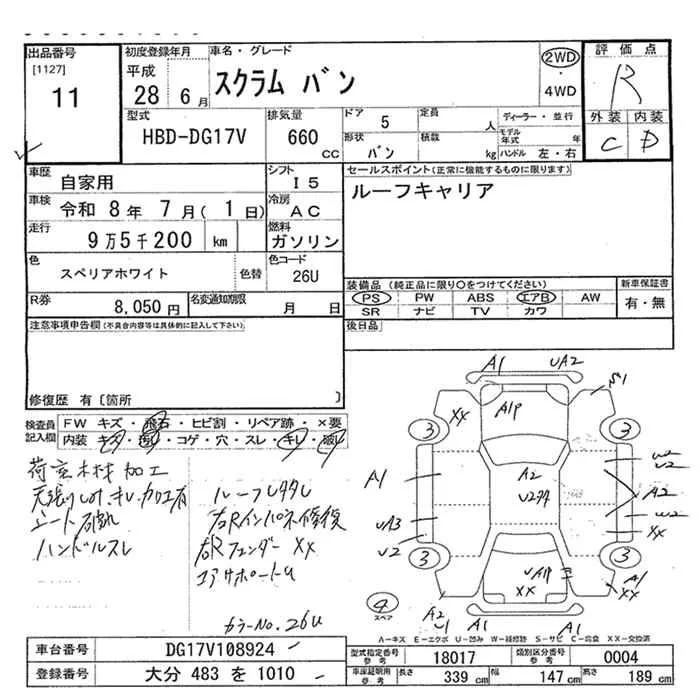 出品番号
[1127]
11
初度登録年月
平成
28 6月
車名・グレード
スクラム バン
2WD
・
4WD
評価点
R
外装 内装
C D
型式
HBD-DG17V
排気量
660
CC
ドア 5
形状
バン
定員
人
積載
kg
ディーラー・並行
モデル年式 年
ハンドル 左・右
車歴
自家用
シフト
I 5
車検
令和 8年 7月( 1日)
冷房
AC
走行
9万5千200 km
燃料
ガソリン
色
スペリアホワイト
色替
色コード
26U
R券
8,050円
名変通知期限
月 日
セールスポイント(正常に機能するものに限ります)
ルーフキャリア
装備品 (純正品に限り○をつけてください)
PS PW ABS エアB AW
SR ナビ TV カワ
新車保証書
有・無
後日品
注意事項申告欄(不具合内容等は具体的に記入して下さい)
修復歴 有〔箇所 〕
検査員
記入欄
FW キズ・飛石・ヒビ割・リペア跡・×要
内装 キズ・汚れ・コゲ・穴・スレ・キレ・破れ
荷室木材加工
シート破れ
ハンドルスレ
右Rインパネ修復
右Rフェンダー XX
コアサポートU
カラーNo.26U
A1 UA2
XX
A1P
3 3
A1
A2
U2
A2
UA3
U2
W2
XX
3 3
XX
A1
XX
4
スペア
A2
A1 A1
A-キズ E-エクボ U-凹み W-補修跡 S-サビ C-腐食 XX-交換済
車台番号
DG17V108924
登録番号
大分 483 を 1010
型式指定番号
参考
18017
類別区分番号
参考
0004
車庫証明用
参考
長さ 339cm
幅 147cm
高さ 189cm